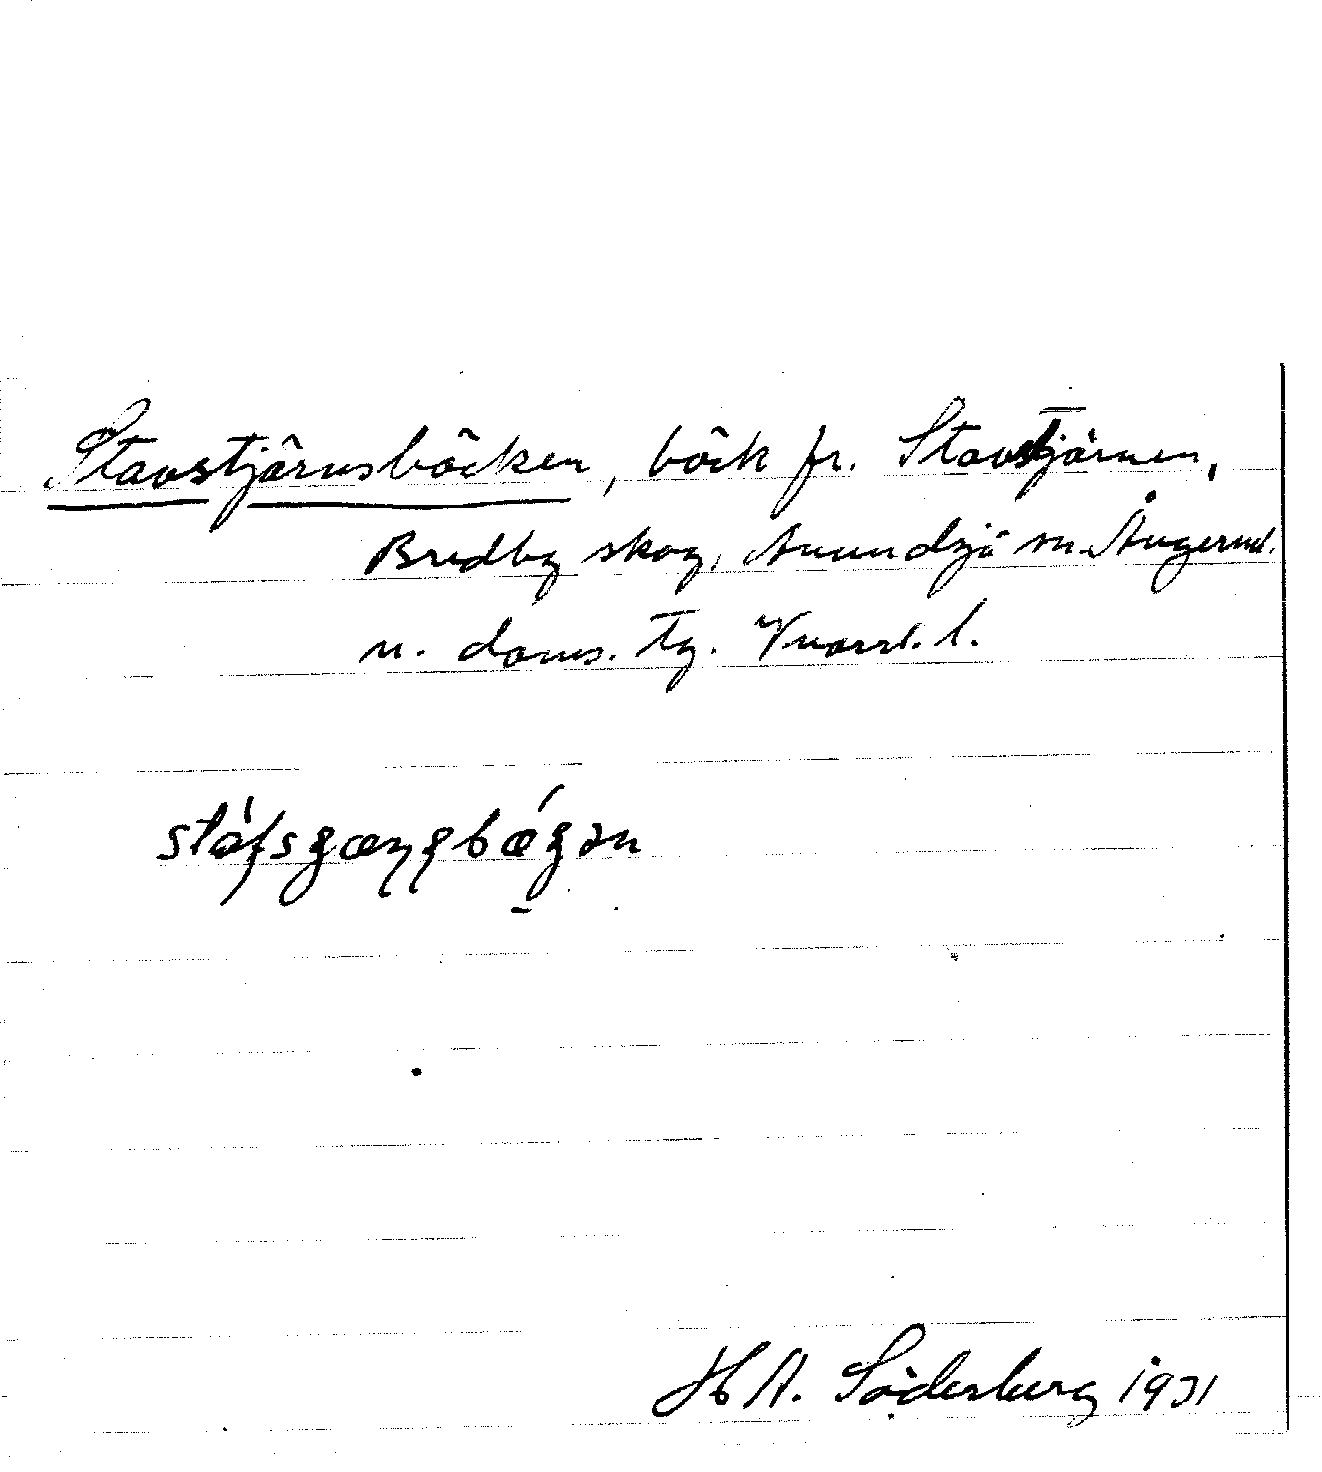 Stavstjärnsbäcken, bäck fr. Stavstjärnen,
Bredby skog, Anundsjö sn. Ångerml.
n. doms. Tg. l.
H A. Söderberg 1931